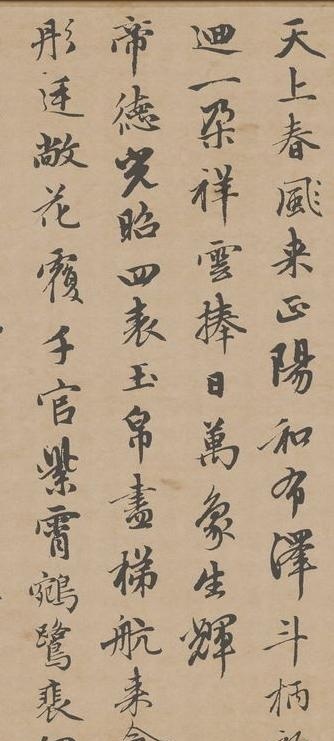 天上春風来正陽和布澤斗柄
迴一朶祥雲捧日萬象生輝
帝德光昭四表玉帛盡梯航来
彤廷敞花覆千官紫霄鵷鷺裴